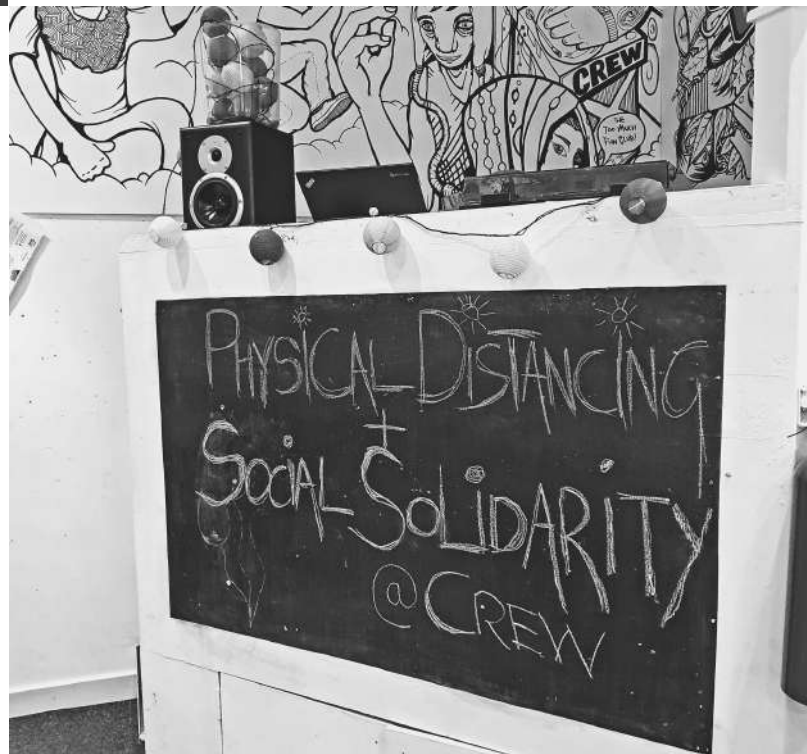 CREW
THE
TOO MUCH
FUN CLUB!
PHYSICAL DISTANCING
+
SOCIAL SOLIDARITY
@CREW